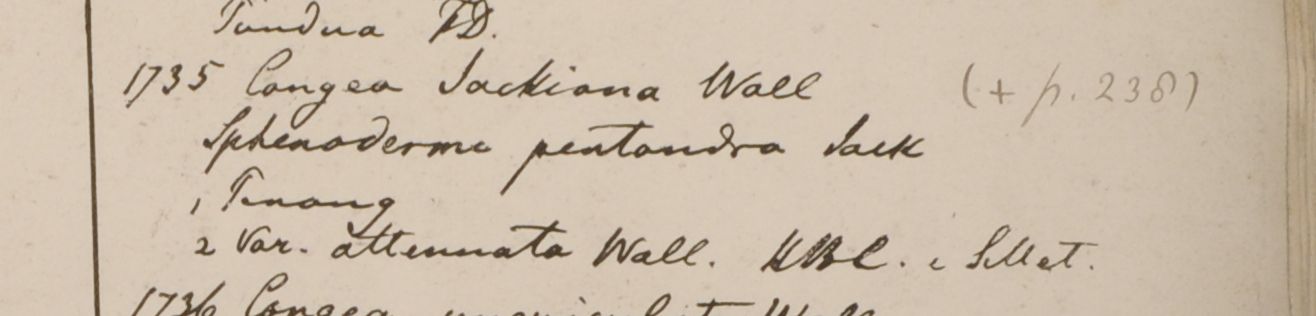 Tundua TD.
1735 Congea Jackiana Wall (+ p. 238)
Sphenoderma pentandra Jack
1 Penang
2 Var. attenuata Wall. HBC. e Sillet.
1736 Congea Wall